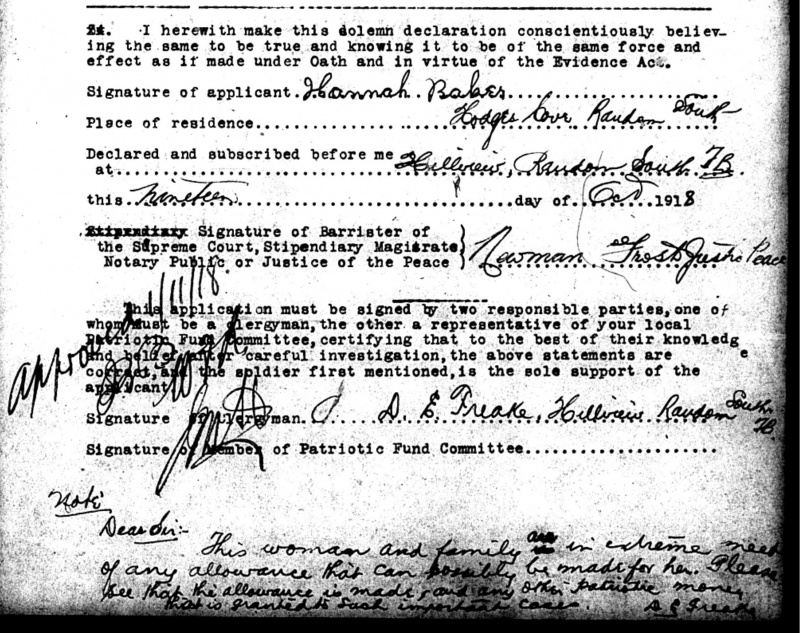 24. I herewith make this solemn declaration conscientiously believ-
ing the same to be true and knowing it to be of the same force and
effect as if made under Oath and in virtue of the Evidence Act.
Signature of applicant. Hannah Baker
Place of residence Hodges Cove Random South
Declared and subscribed before me
at Hillview, Random South T.B.
this Nineteen day of Oct 1918
Stipendiary Signature of Barrister of
the Supreme Court, Stipendiary Magistrate,
Notary Public or Justice of the Peace } Newman Frost Justice Peace
This application must be signed by two responsible parties, one of
whom must be a clergyman, the other a representative of your local
Patriotic Fund Committee, certifying that to the best of their knowledge
and belief after careful investigation, the above statements are
correct, and the soldier first mentioned, is the sole support of the
applicant.
approved
11/18
Signature of Clergyman. D. E. Freake, Hillview Random South T.B.
Signature of Member of Patriotic Fund Committee
Note
Dear Sir:-
This woman and family are in extreme need
of any allowance that can possibly be made for her. Please
see that the allowance is made, and any other patriotic money
that is granted to such important cases. D E Freake